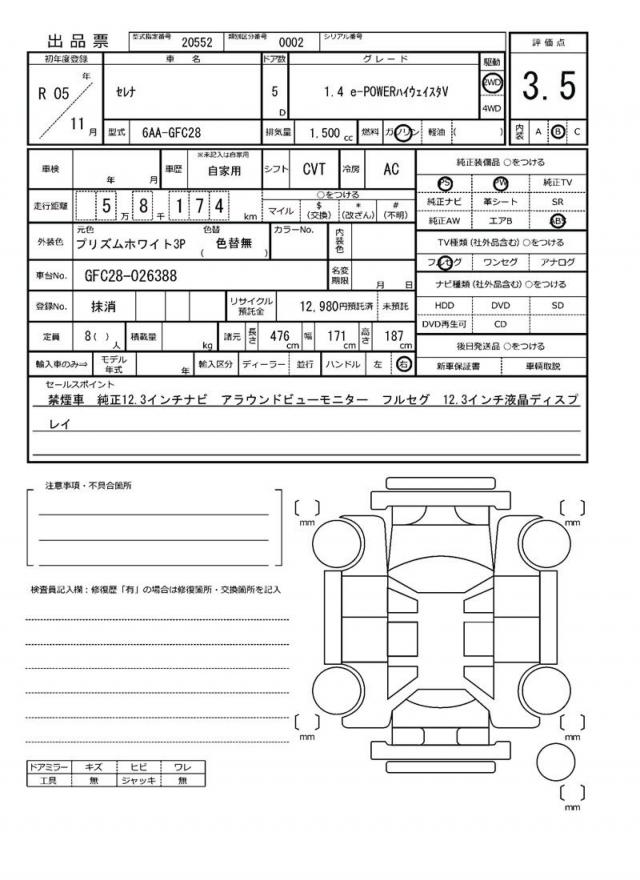 出品票 型式指定番号 20552 類別区分番号 0002 シリアル番号
初年度登録 車名 ドア数 グレード 駆動 評価点
R 05 年 11 月 セレナ 5 D 1.4 e-POWERハイウェイスタV 2WD 4WD 3.5
型式 6AA-GFC28 排気量 1.500 cc 燃料 ガソリン 軽油 ( ) 内装 A B C
車検 年 月 車歴 ※未記入は自家用 自家用 シフト CVT 冷房 AC 純正装備品 ○をつける
PS PW 純正TV
走行距離 5 万 8 千 1 7 4 km ○をつける マイル $ (交換) * (改ざん) # (不明) 純正ナビ 革シート SR
純正AW エアB ABS
外装色 元色 プリズムホワイト3P 色替 ( 色替無 ) カラーNo. 内装色 TV種類 (社外品含む) ○をつける
フルセグ ワンセグ アナログ
車台No. GFC28-026388 名変期限 月 日 ナビ種類 (社外品含む) ○をつける
登録No. 抹消 リサイクル預託金 12,980円預託済 未預託 HDD DVD SD
DVD再生可 CD
定員 8 ( ) 人 積載量 kg 諸元 長さ 476 cm 幅 171 cm 高さ 187 cm 後日発送品 ○をつける
輸入車のみ⇒ モデル年式 年 輸入区分 ディーラー 並行 ハンドル 左 右 新車保証書 車輌取説
セールスポイント
禁煙車 純正12.3インチナビ アラウンドビューモニター フルセグ 12.3インチ液晶ディスプ
レイ
注意事項・不具合箇所
mm mm
検査員記入欄：修復歴「有」の場合は修復箇所・交換箇所を記入
mm mm
ドアミラー キズ ヒビ ワレ
工具 無 ジャッキ 無
mm